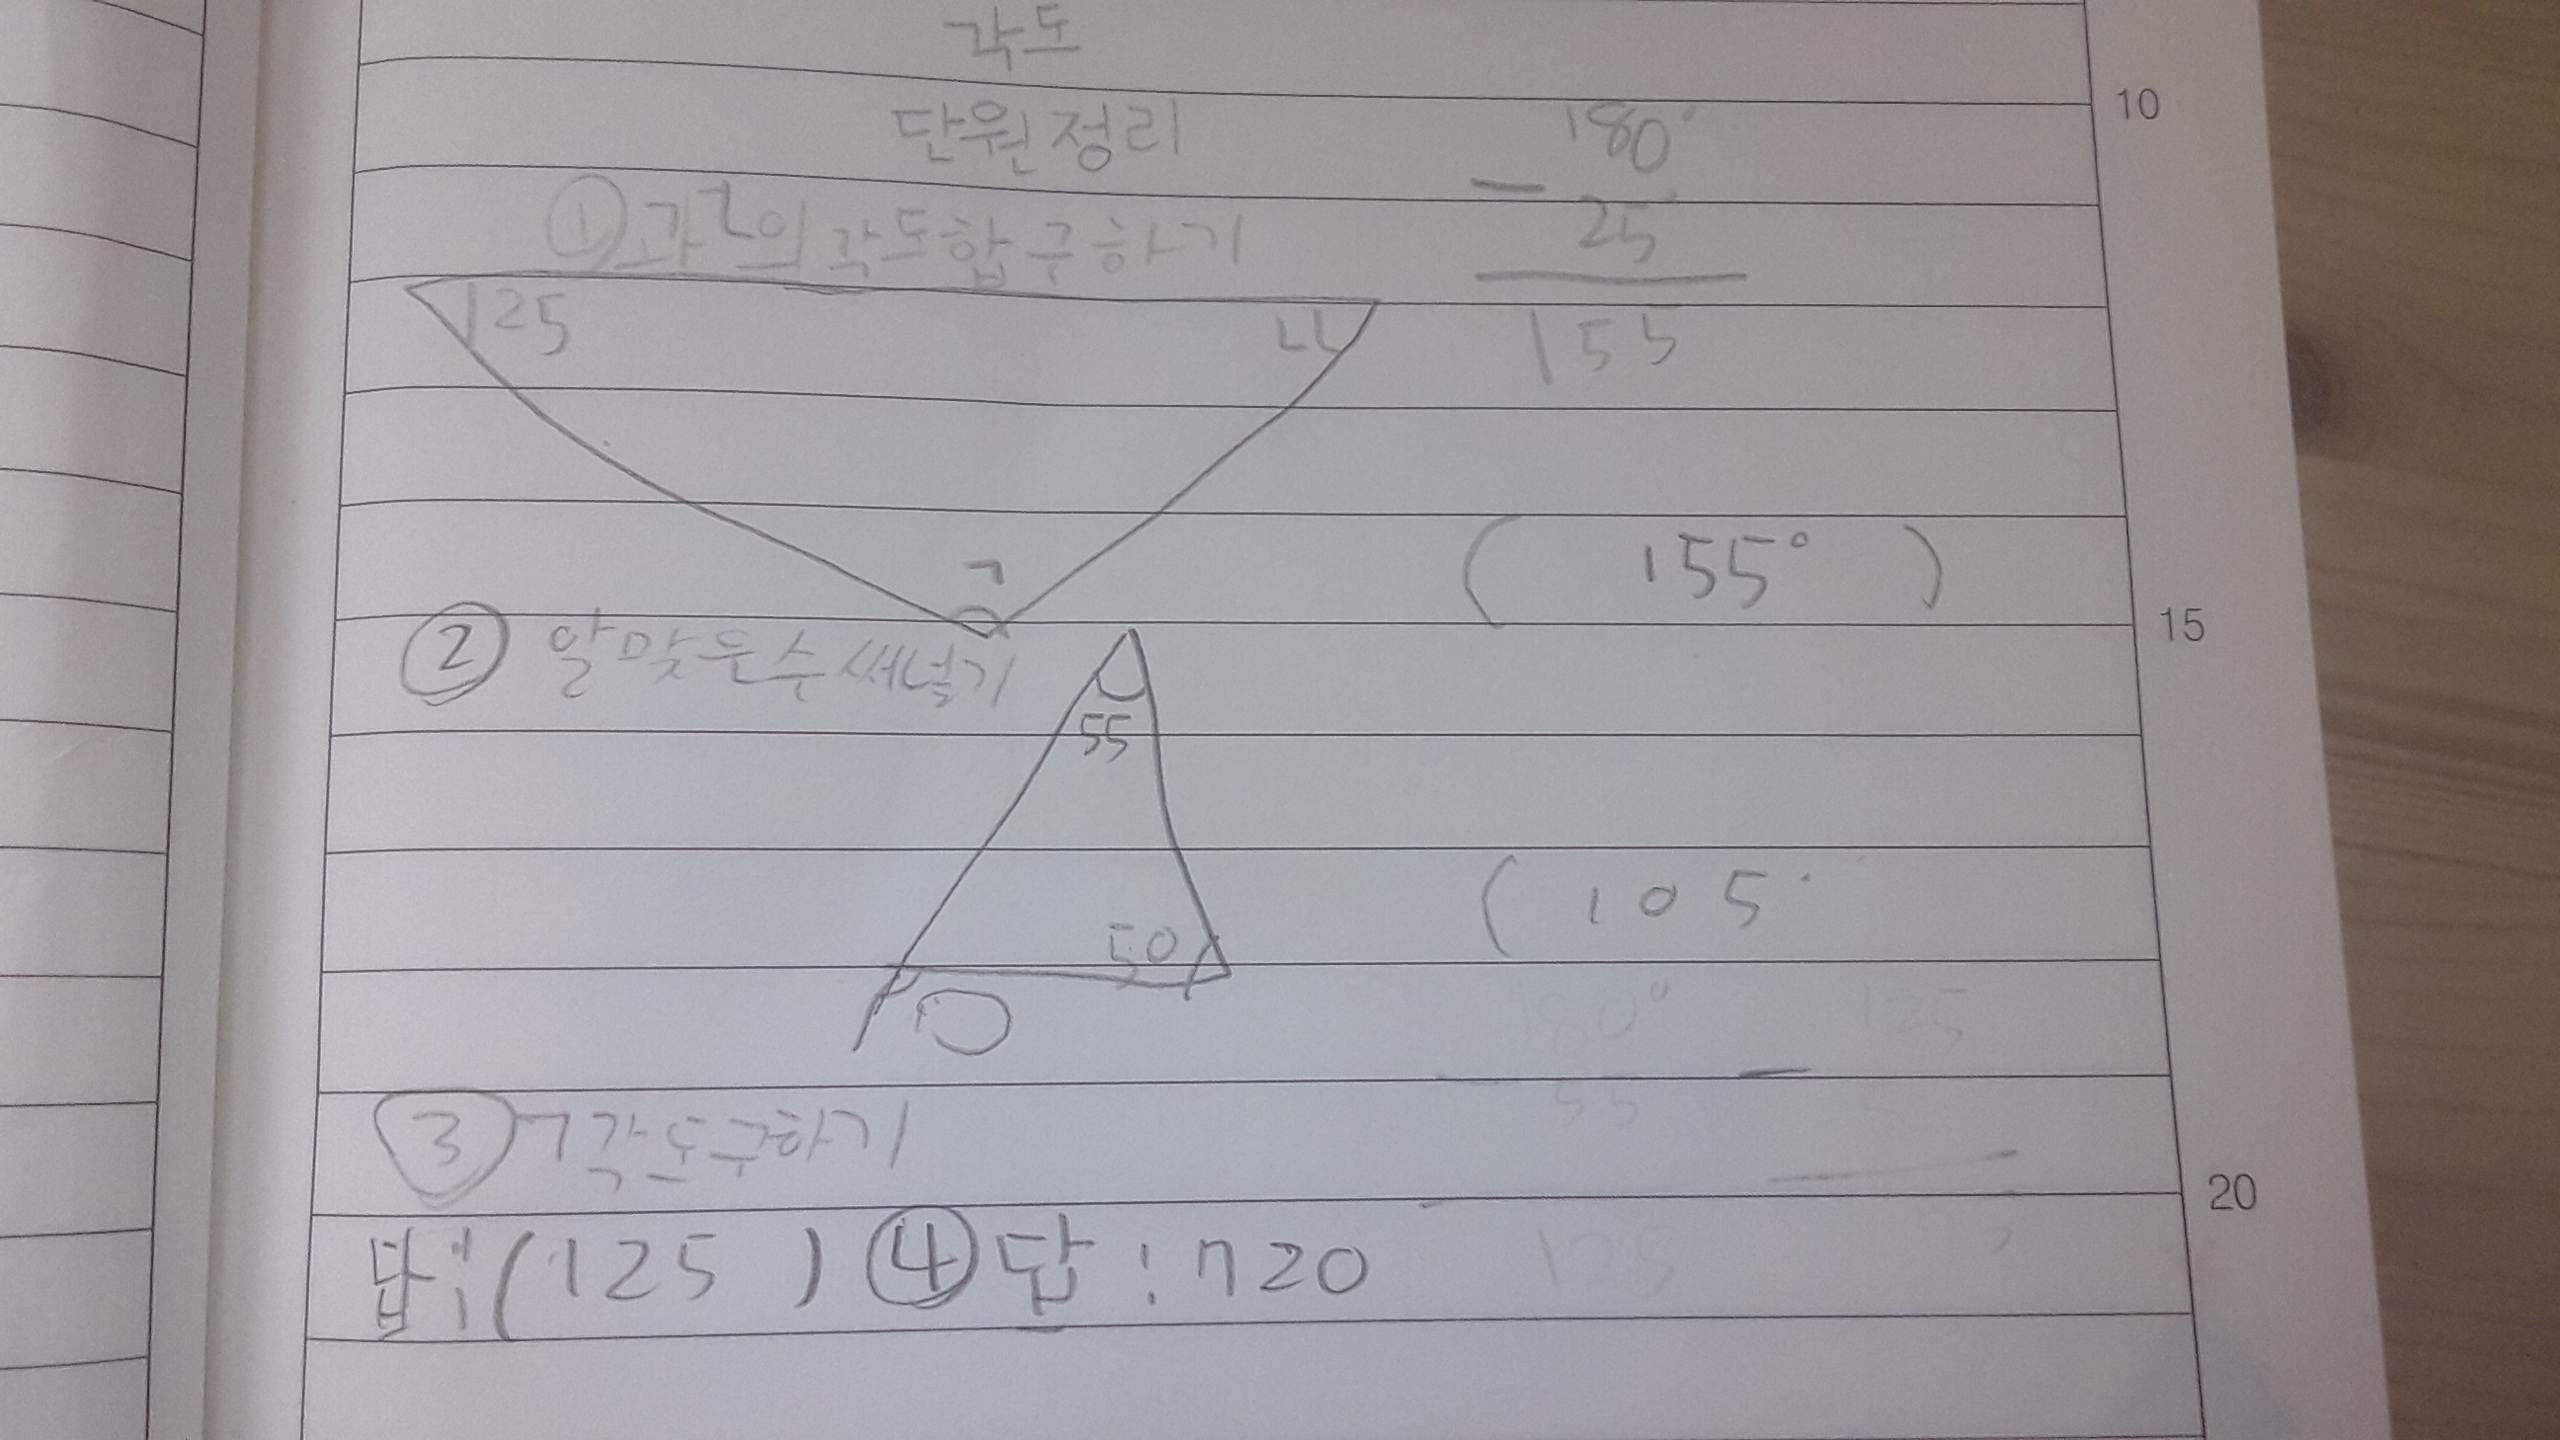 각도
단원정리
180°
- 25
155
①ㄱ과ㄴ의 각도합구하기
25
ㄴ
ㄱ
( 155° )
② 알맞은수써넣기
55
50
( 105°
180° 125
55
125
③ ㄱ각도구하기
답:(125 ) ④ 답 : 720
10
15
20